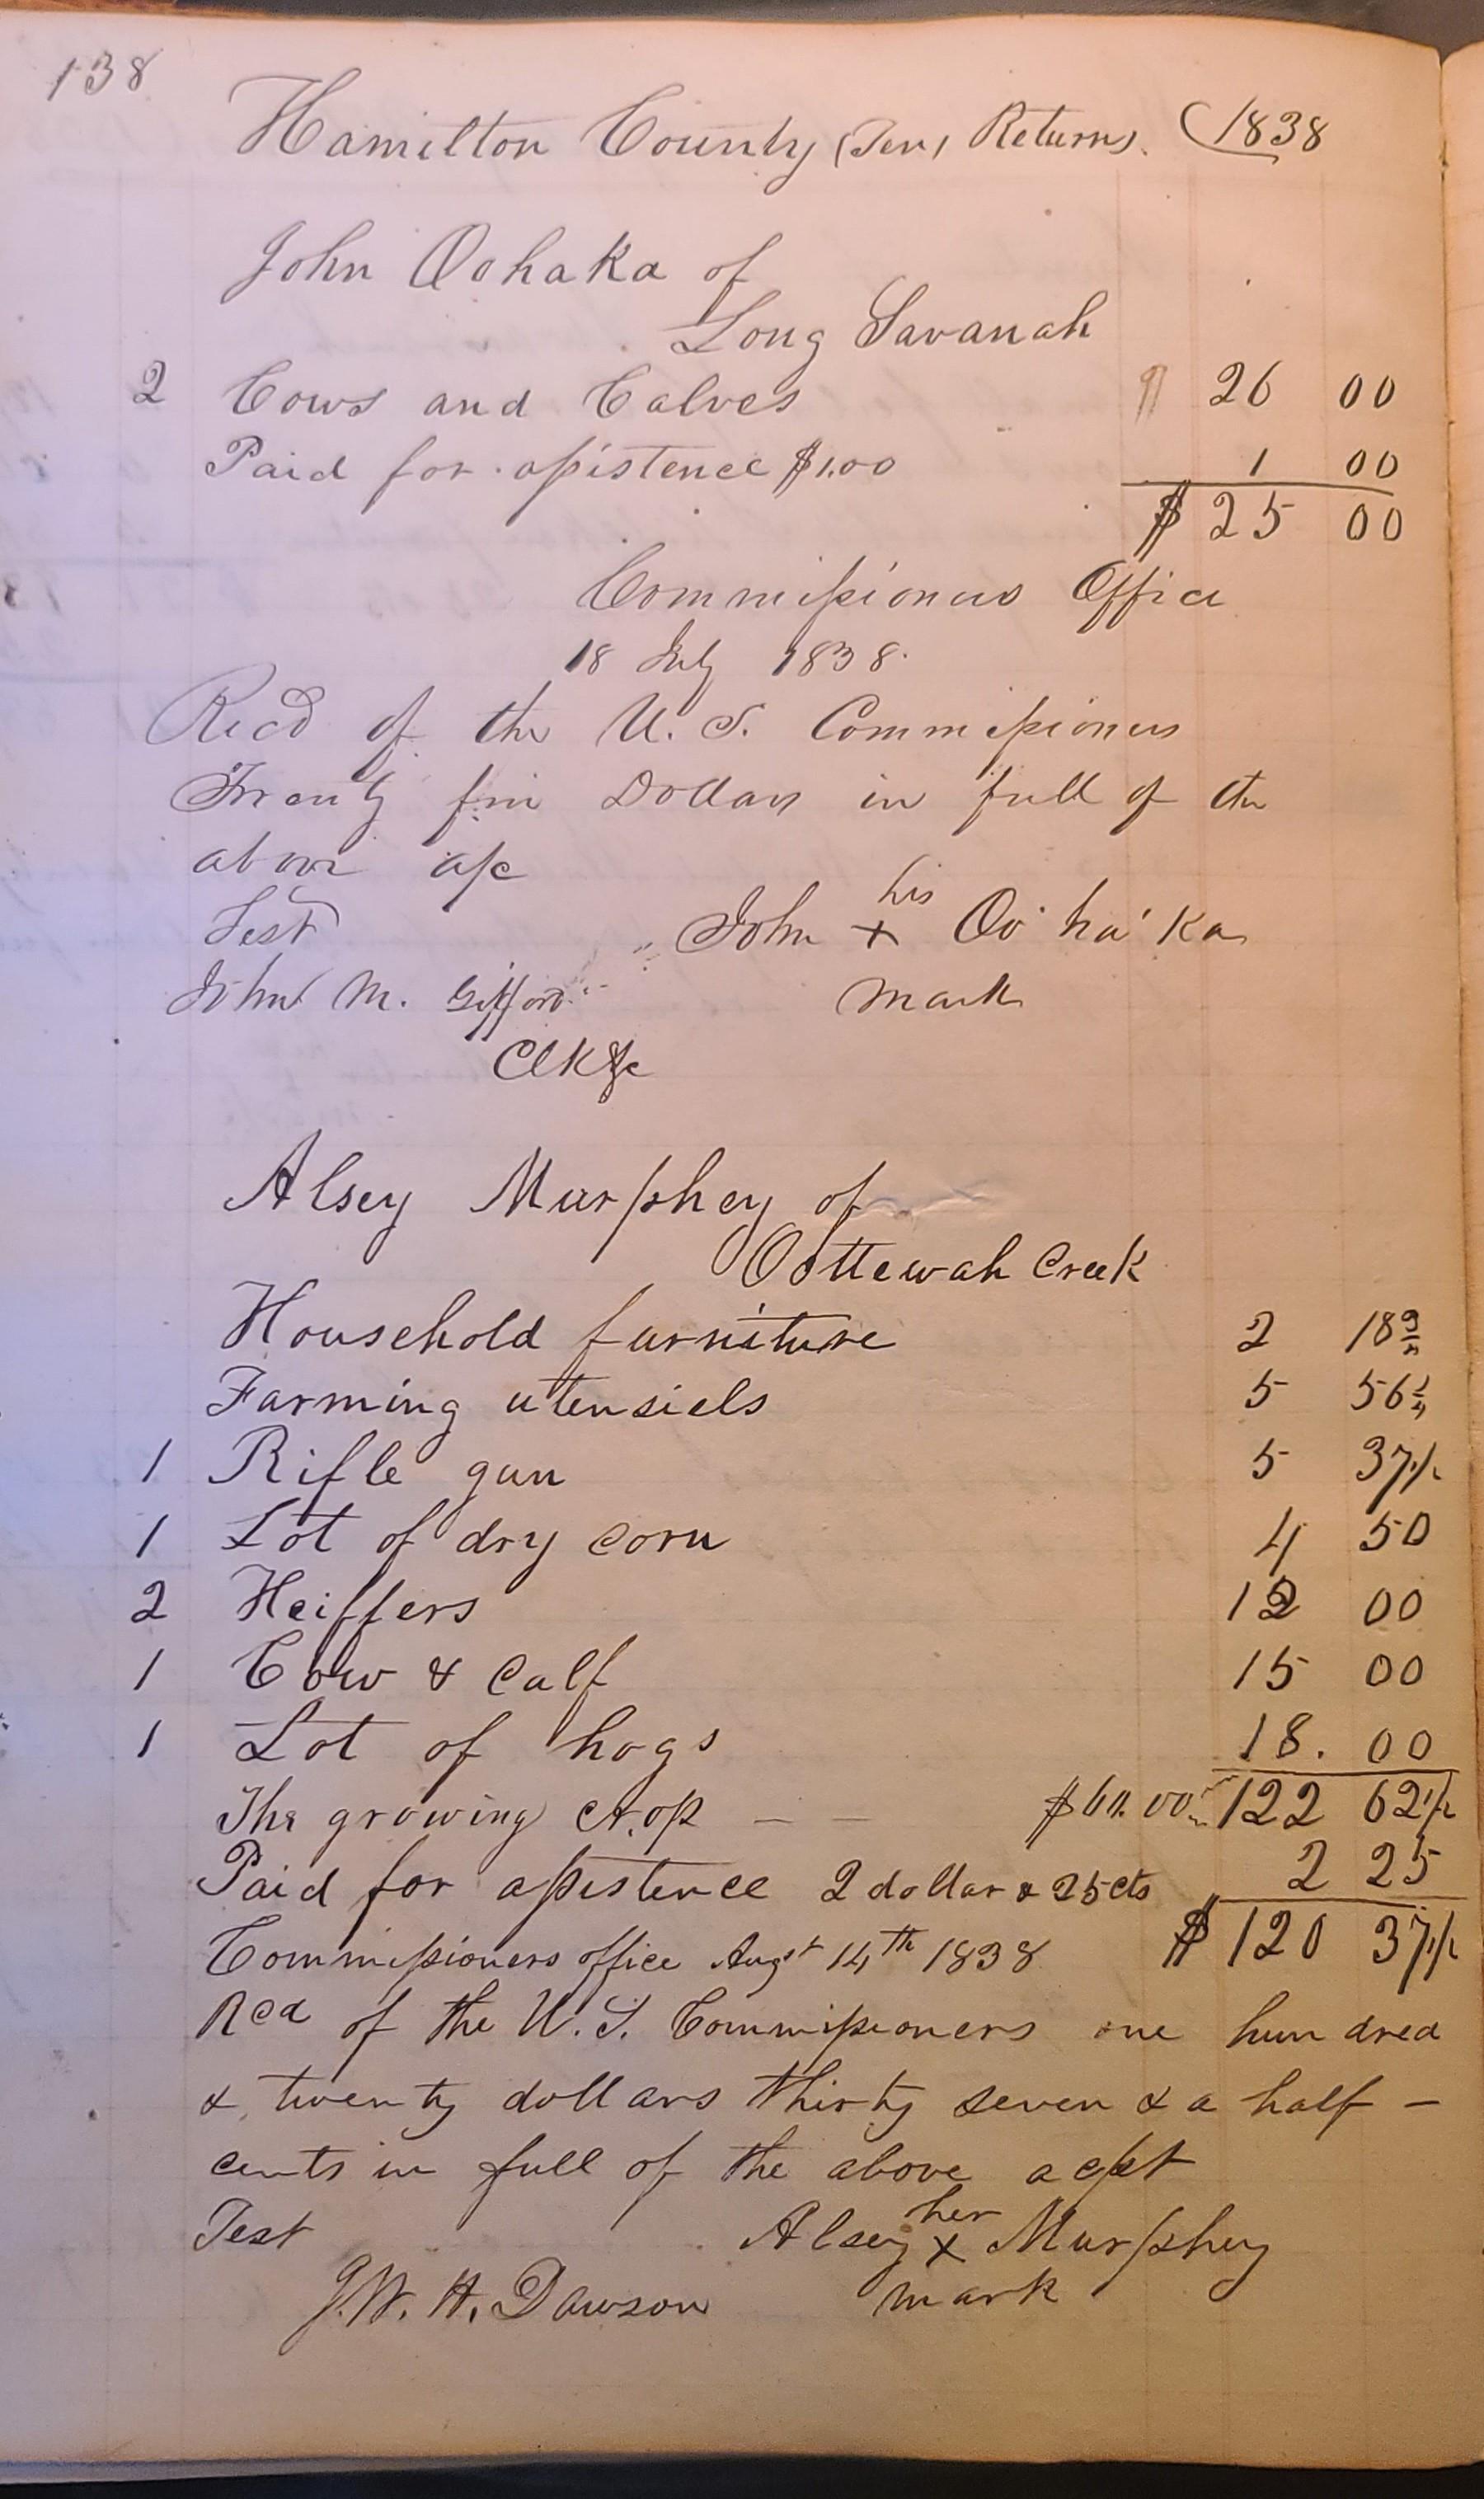 138
Hamilton County (Ten) Returns. 1838
John Oohaka of
Long Savanah
2 Cows and Calves $ 26 00
Paid for assistence $1.00 1 00
$ 25 00
Commissioners Office
18 July 1838.
Recd of the U. S. Commissioners
Twenty five Dollars in full of the
above a/c
Test John his x Oo'ha'ka
John M. Gifford mark
Clk &c
Alsey Murphey of
Oottewah Creek
Household furniture 2 18 3/4
Farming utensiels 5 56 1/4
1 Rifle gun 5 37 1/2
1 Lot of dry corn 4 50
2 Heiffers 12 00
1 Cow & Calf 15 00
1 Lot of hogs 18. 00
The growing crop — — $60.00 122 62 1/2
Paid for assistence 2 dollar & 25 cts 2 25
$ 120 37 1/2
Commissioners office Augst 14th 1838
Rcd of the U. S. Commissioners one hundred
& twenty dollars thirty seven & a half —
cents in full of the above acpt
Test Alsey her x Murphey
J. W. H. Dawson mark